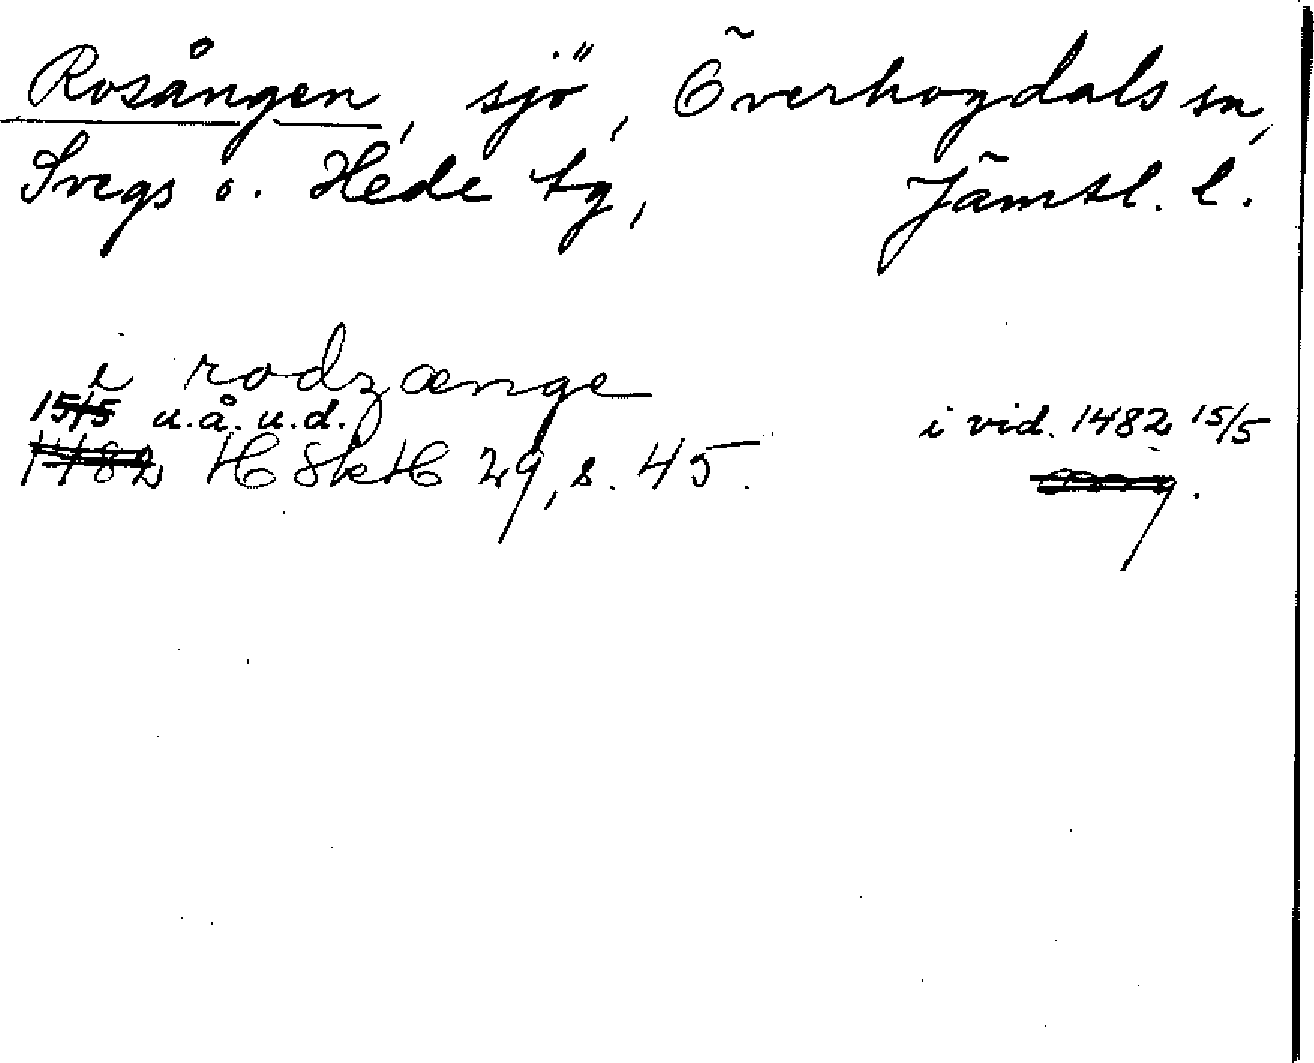 Rosången, sjö, Överhogdals sn,
Svegs o. Hede tg, Jämtl. l.
i rodzænge
15/5 u.å.u.d. i vid. 1482 15/5
1482 HSkH 29, s. 45.